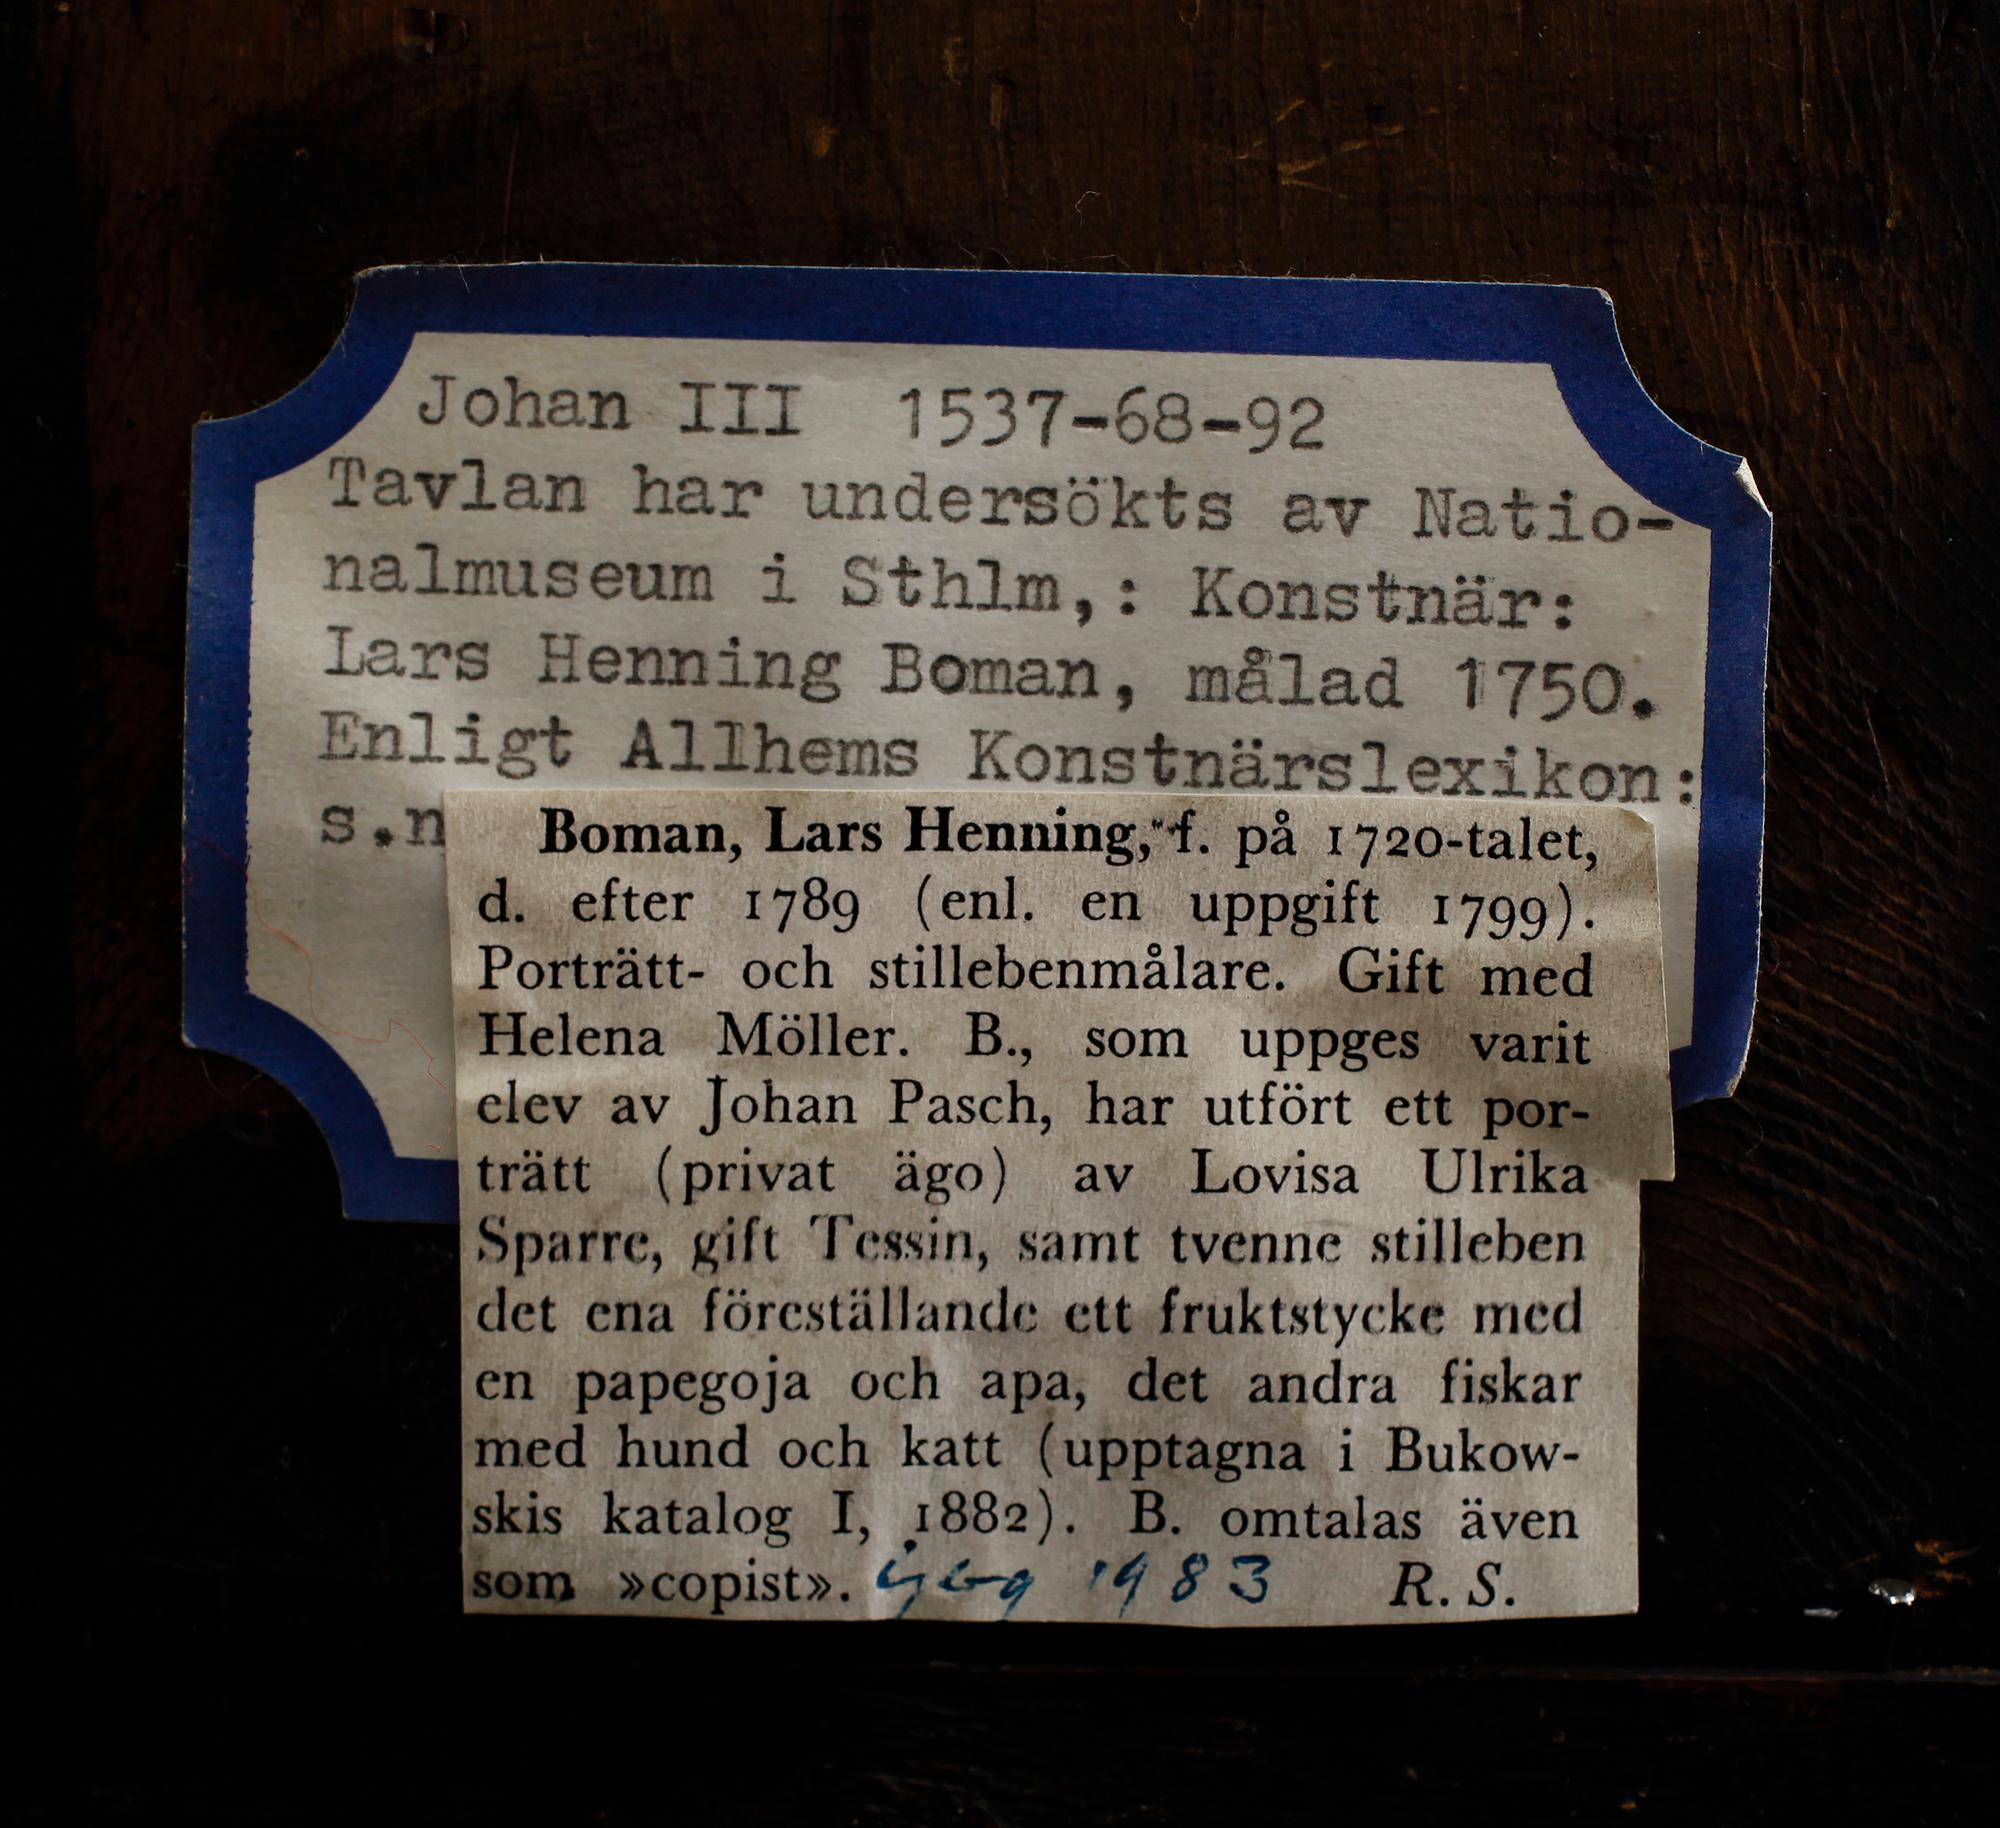 Johan III 1537-68-92
Tavlan har undersökts av Natio-
nalmuseum i Sthlm,: Konstnär:
Lars Henning Boman, målad 1750.
Enligt Allhems Konstnärslexikon:
s.n
Boman, Lars Henning, f. på 1720-talet,
d. efter 1789 (enl. en uppgift 1799).
Porträtt- och stillebenmålare. Gift med
Helena Möller. B., som uppges varit
elev av Johan Pasch, har utfört ett por-
trätt (privat ägo) av Lovisa Ulrika
Sparre, gift Tessin, samt tvenne stilleben
det ena föreställande ett fruktstycke med
en papegoja och apa, det andra fiskar
med hund och katt (upptagna i Bukow-
skis katalog I, 1882). B. omtalas även
som »copist». 1983 R. S.